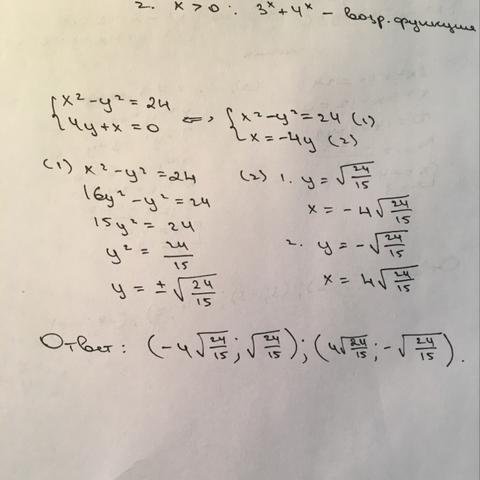 2. x > 0 : 3^x + 4^x – возр. функция
{x² – y² = 24
{4y + x = 0
<=>
{x² – y² = 24 (1)
{x = –4y (2)
(1) x² – y² = 24
16y² – y² = 24
15y² = 24
y² = 24/15
y = ±√(24/15)
(2) 1. y = √(24/15)
x = –4√(24/15)
2. y = –√(24/15)
x = 4√(24/15)
Ответ: (–4√(24/15); √(24/15)); (4√(24/15); –√(24/15)).